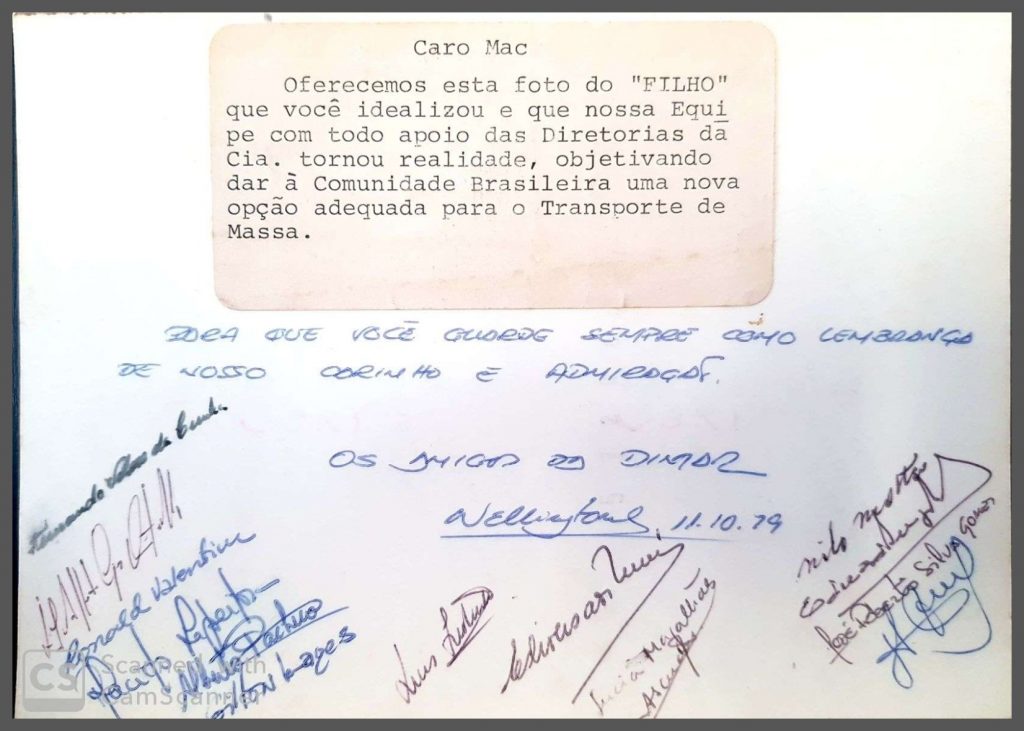 Caro Mac
Oferecemos esta foto do "FILHO"
que você idealizou e que nossa Equi
pe com todo apoio das Diretorias da
Cia. tornou realidade, objetivando
dar à Comunidade Brasileira uma nova
opção adequada para o Transporte de
Massa.
PARA QUE VOCÊ GUARDE SEMPRE COMO LEMBRANÇA
DE NOSSO CARINHO E ADMIRAÇÃO.
OS AMIGOS DO DIMAR
Wellington 11.10.79
Fernando da Cunha
Ronald Valentim
Alberto Pacheco
Milton Lages
Luis
Lucia Magalhães
Nilo
José Roberto Silva Gomes
CS Scanned with
CamScanner